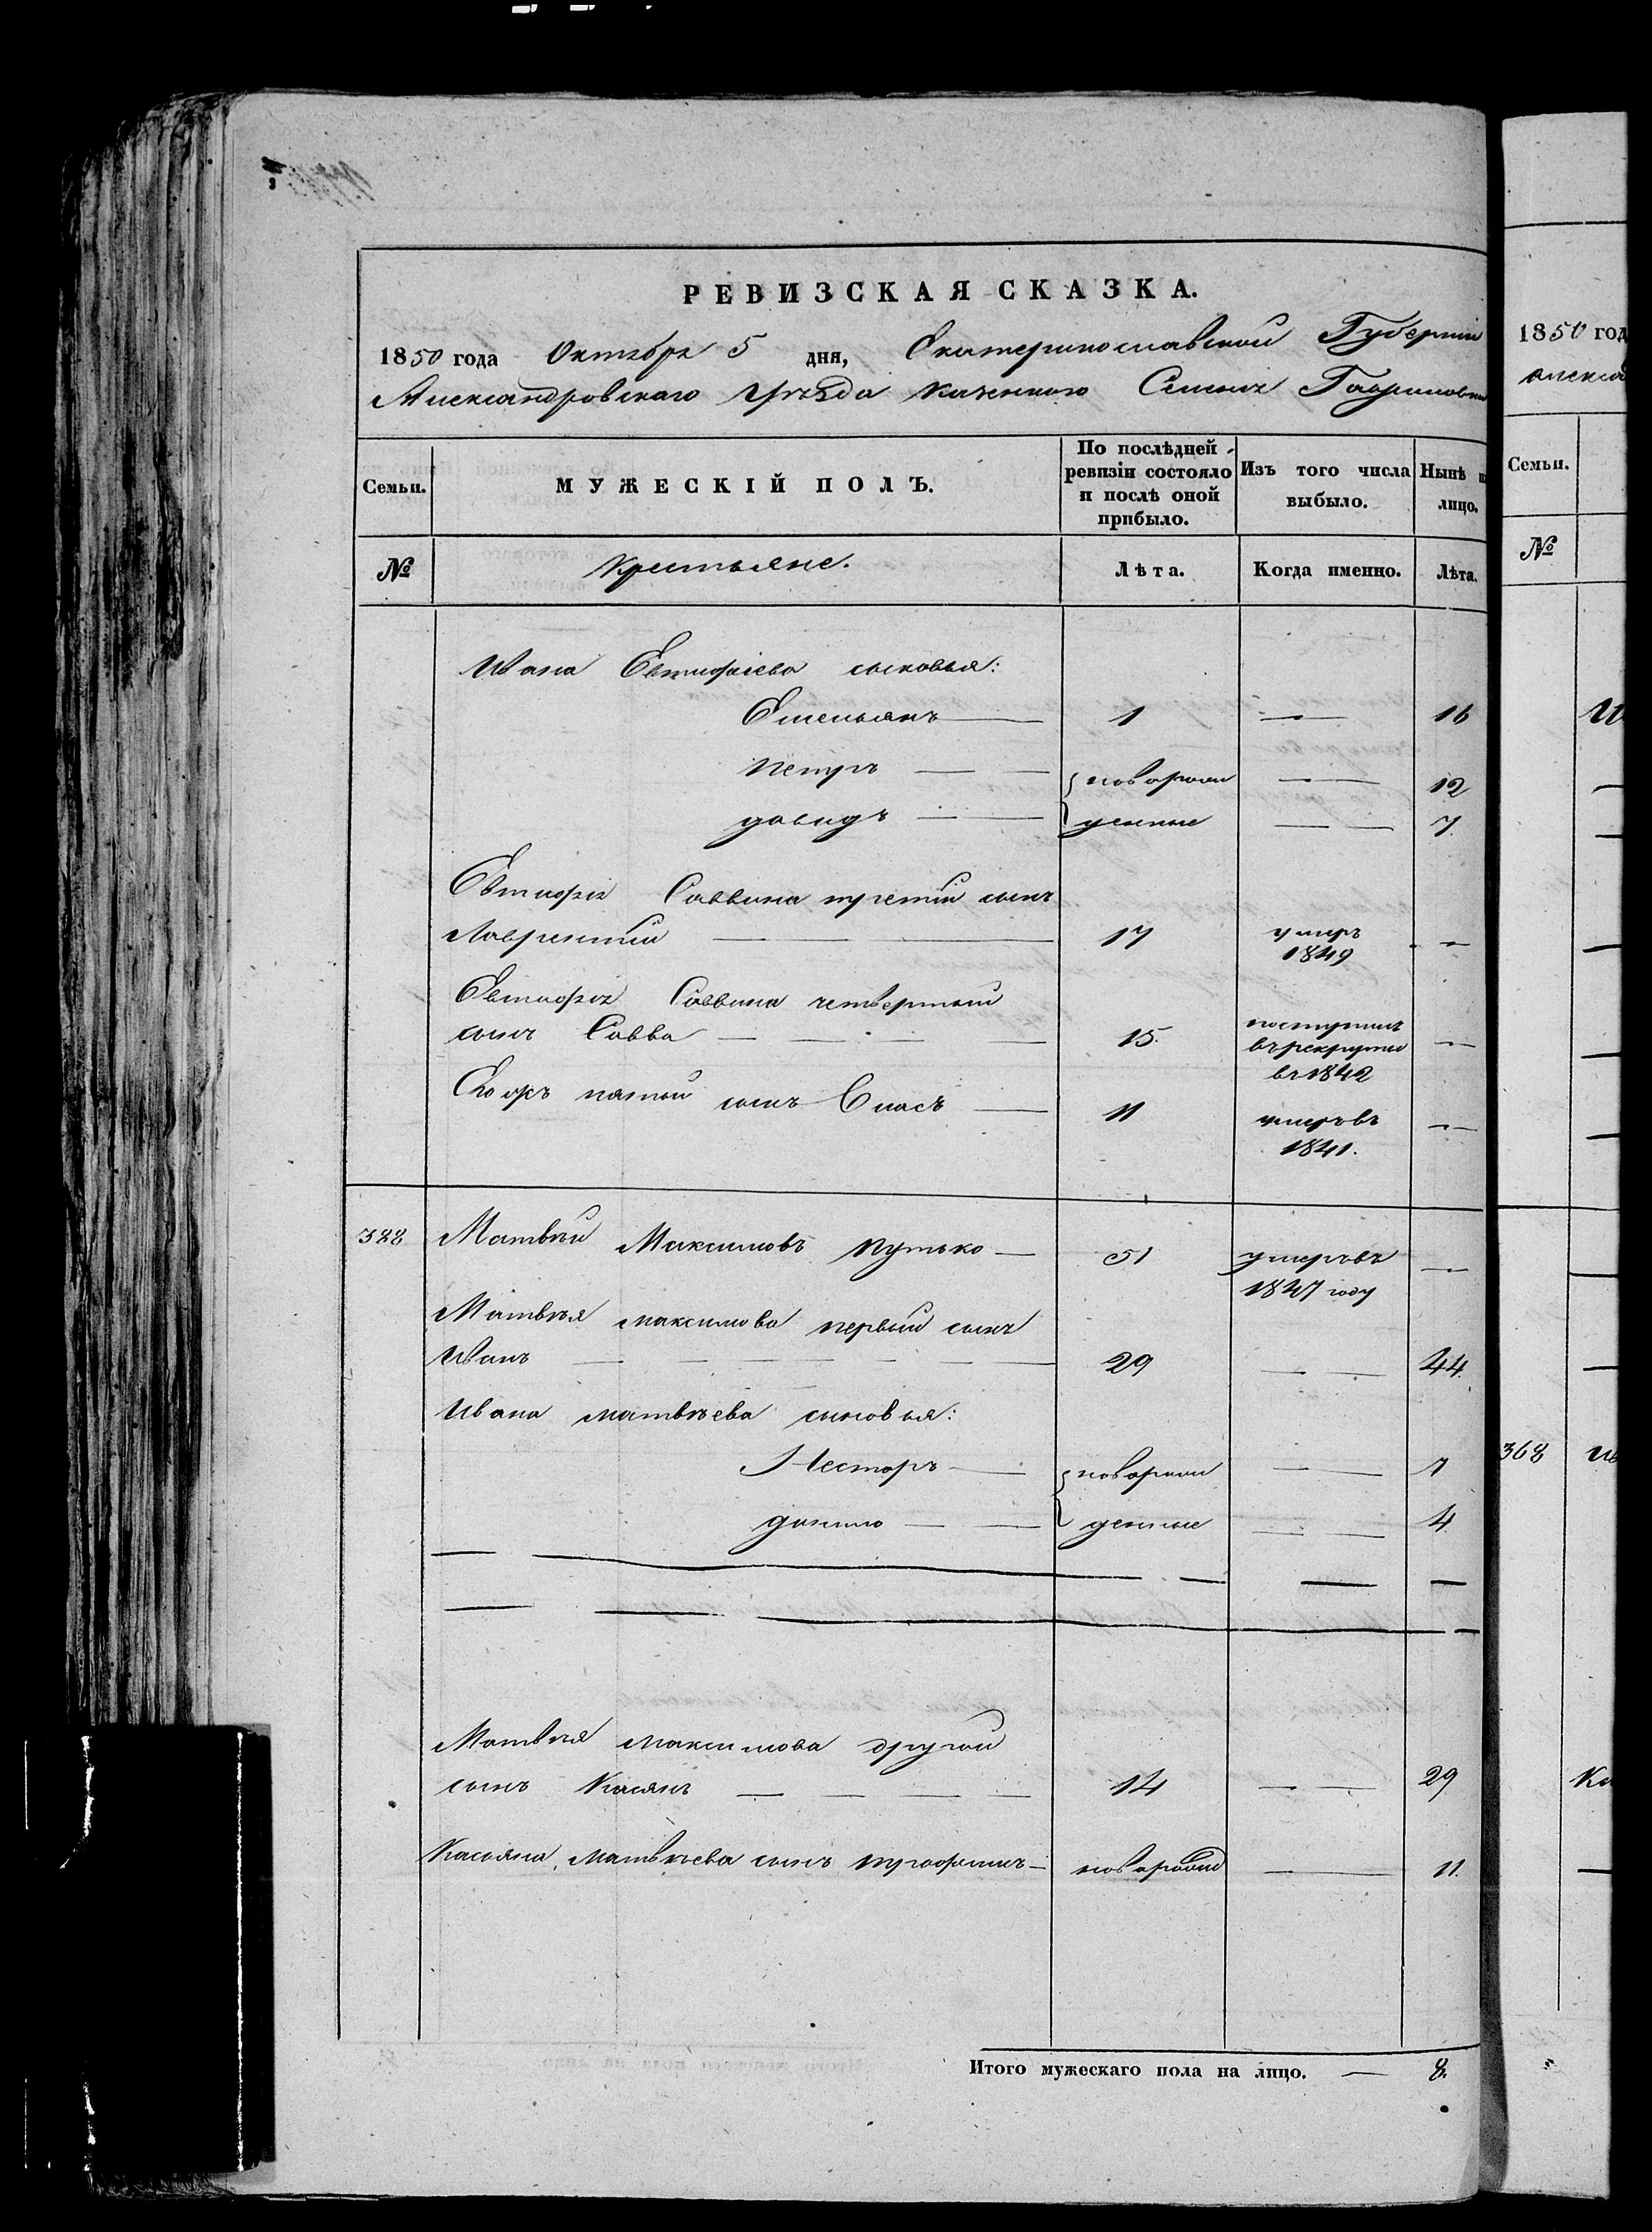 РЕВИЗСКАЯ СКАЗКА.
1850 года Октября 5 дня, Екатеринославской Губерніи
Александровскаго Уѣзда казенного Селенія Гавриловки
Семьи.
МУЖЕСКІЙ ПОЛЪ.
По послѣдней ревизіи состояло и послѣ оной прибыло.
Изъ того числа выбыло.
Нынѣ на лицо.
№ Крестьяне. Лѣта. Когда именно. Лѣта.
Ивана Евтиофіева сыновья:
Емельянъ — 1 — 16
Петръ — новорож — 12
давидъ — денные — 7.
Саввина третій сынъ
Лаврентій — 17 умеръ 1849 —
Саввина четвертый
сынъ Савва — 15. поступилъ въ рекруты въ 1842 —
пятый сынъ — 11 умеръ въ 1841. —
328 Матвѣй Максимовъ Путько — 51 умеръ въ 1847 году —
Матвѣя максимова первый сынъ
Иванъ — 29 — 44.
Ивана матвѣева сыновья:
Несторъ — новорож — 7
данило — денные — 4.
Матвѣя максимова другой
сынъ Касянъ — 14 — 29
Касьяна Матвѣева сынъ — новорожд — 11.
Итого мужескаго пола на лицо. — 8.
1850 год
Алексан
Семьи.
№
Ив
368 Ив
Ка